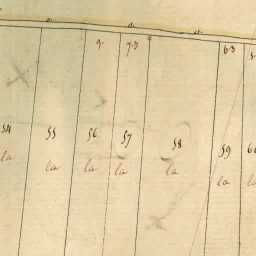 9. 7.3 6.3
54 55 56 57 58 59
la la la la la la la